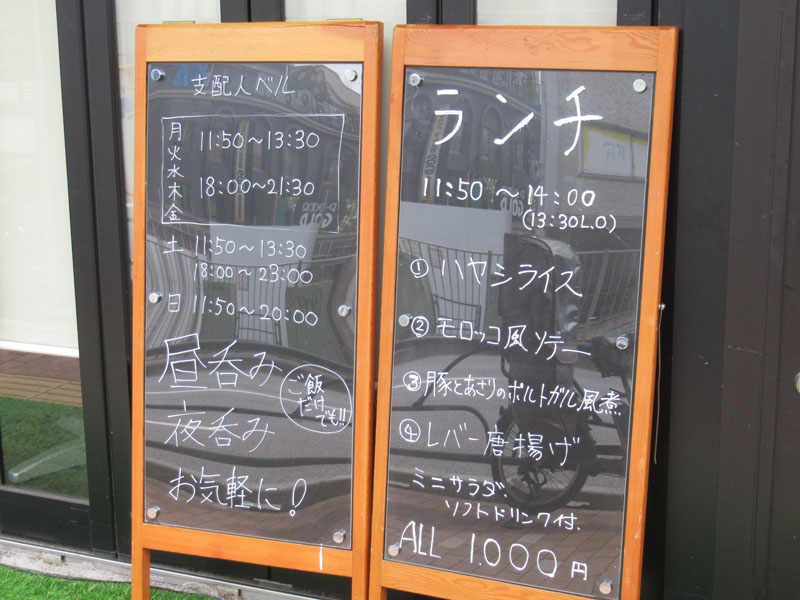 支配人ベル
月火水木金
11:50～13:30
18:00～21:30
土 11:50～13:30
18:00～23:00
日 11:50～20:00
昼呑み
夜呑み
ご飯
だけ
でも!!
お気軽に!
ランチ
11:50 ～ 14:00
(13:30L.O)
① ハヤシライス
② モロッコ風ソテー
③ 豚とあさりのポルトガル風煮
④ レバー唐揚げ
ミニサラダ.
ソフトドリンク付.
ALL 1.000円